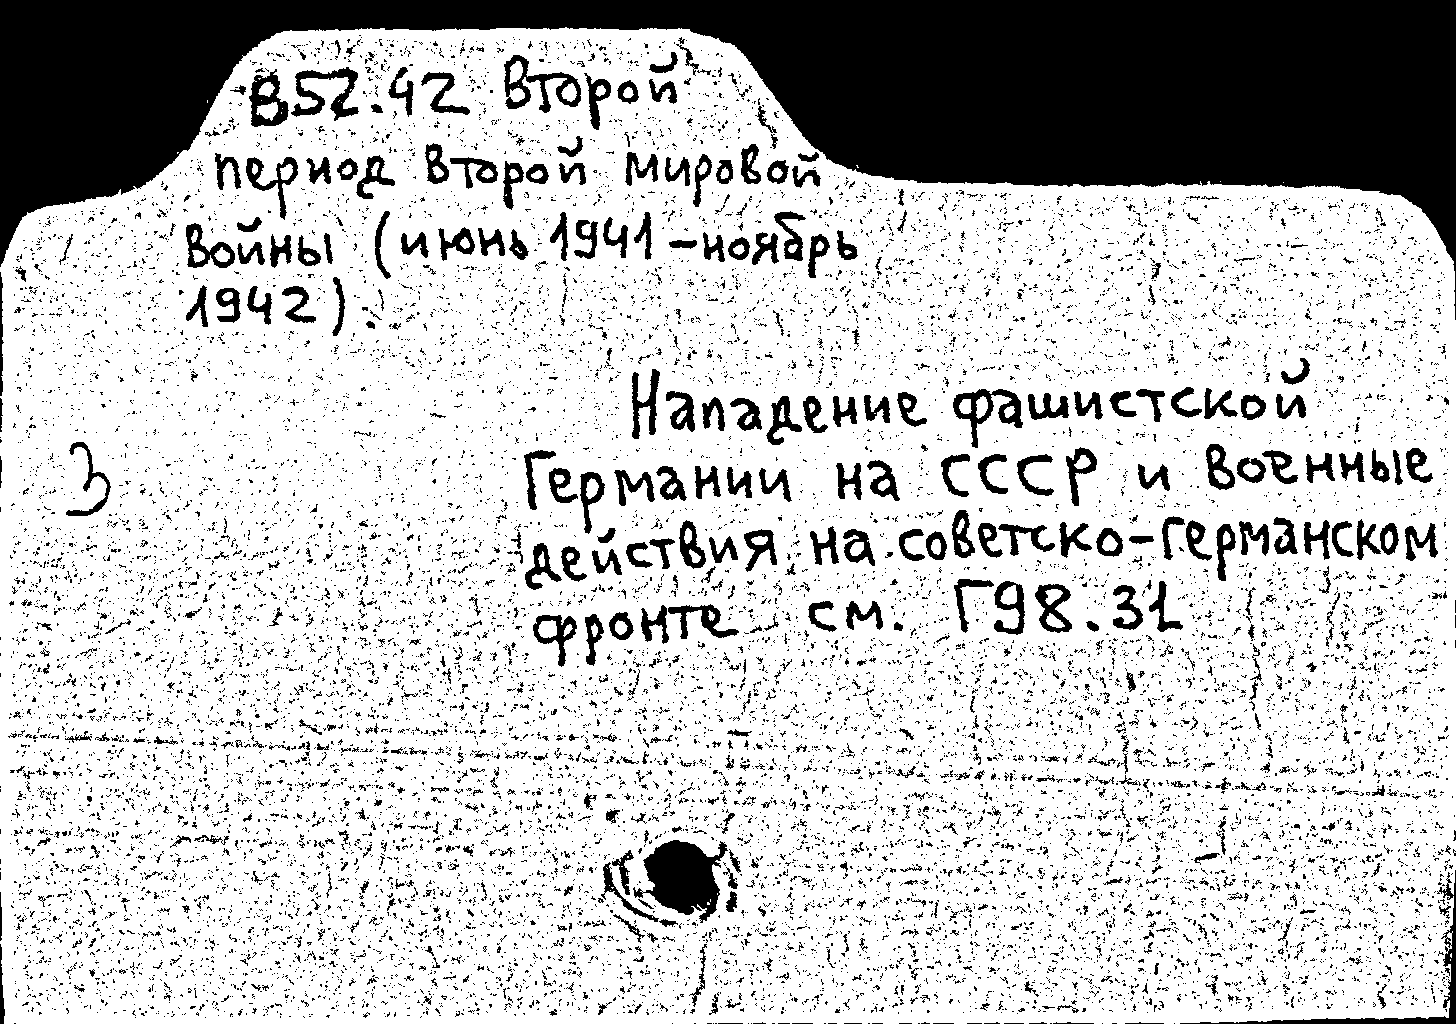 В52.42 Второй
период Второй мировой
войны (июнь 1941-ноябрь
1942).
Нападение фашистской
Германии на СССР и военные
3
действия на советско-германском
фронте см. Г98.31